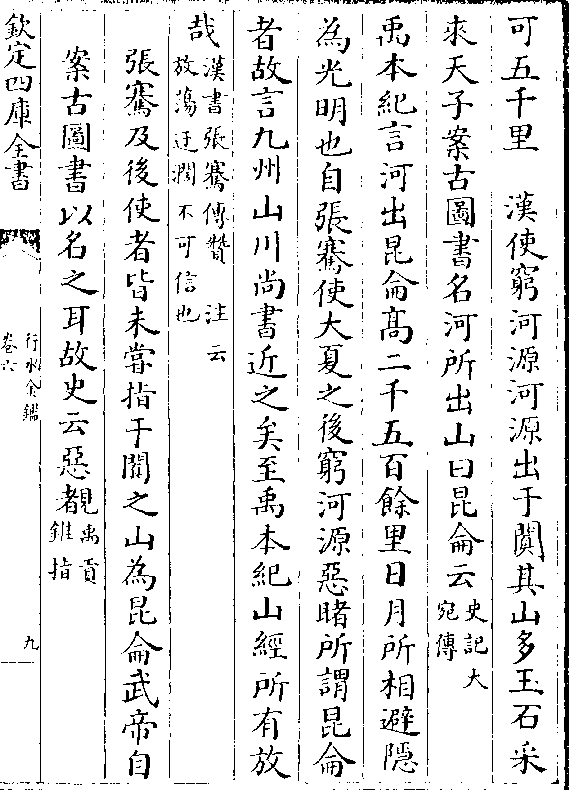 可五千里　漢使窮河源河源出于闐其山多玉石采
來天子案古圖書名河所出山曰昆侖云史記大宛傳
禹本紀言河出昆侖髙二千五百餘里日月所相避隱
為光明也自張騫使大夏之後窮河源惡睹所謂昆侖
者故言九州山川尚書近之矣至禹本紀山經所有放
哉漢書張騫傳贊　注云放蕩迂濶不可信也
張騫及後使者皆未嘗指于闐之山為昆侖武帝自
案古圖書以名之耳故史云惡覩者禹貢錐指
欽定四庫全書
行水金鑑
卷六
九